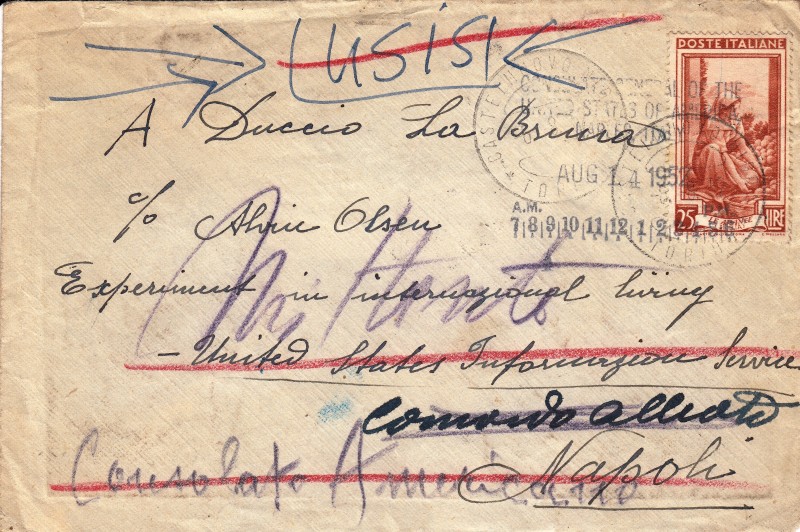 USIS
POSTE ITALIANE
CONSULATE GENERAL OF THE
UNITED STATES OF AMERICA
A Duccio La Bruna
AUG 14 1952
A.M.
7 8 9 10 11 12 1 2 3 4 5 6
25 LIRE
c/o Alvin Olsen
Experiment in internazional living
- United States Informazion Service
Comando Alleato
Napoli
Consolato Americano